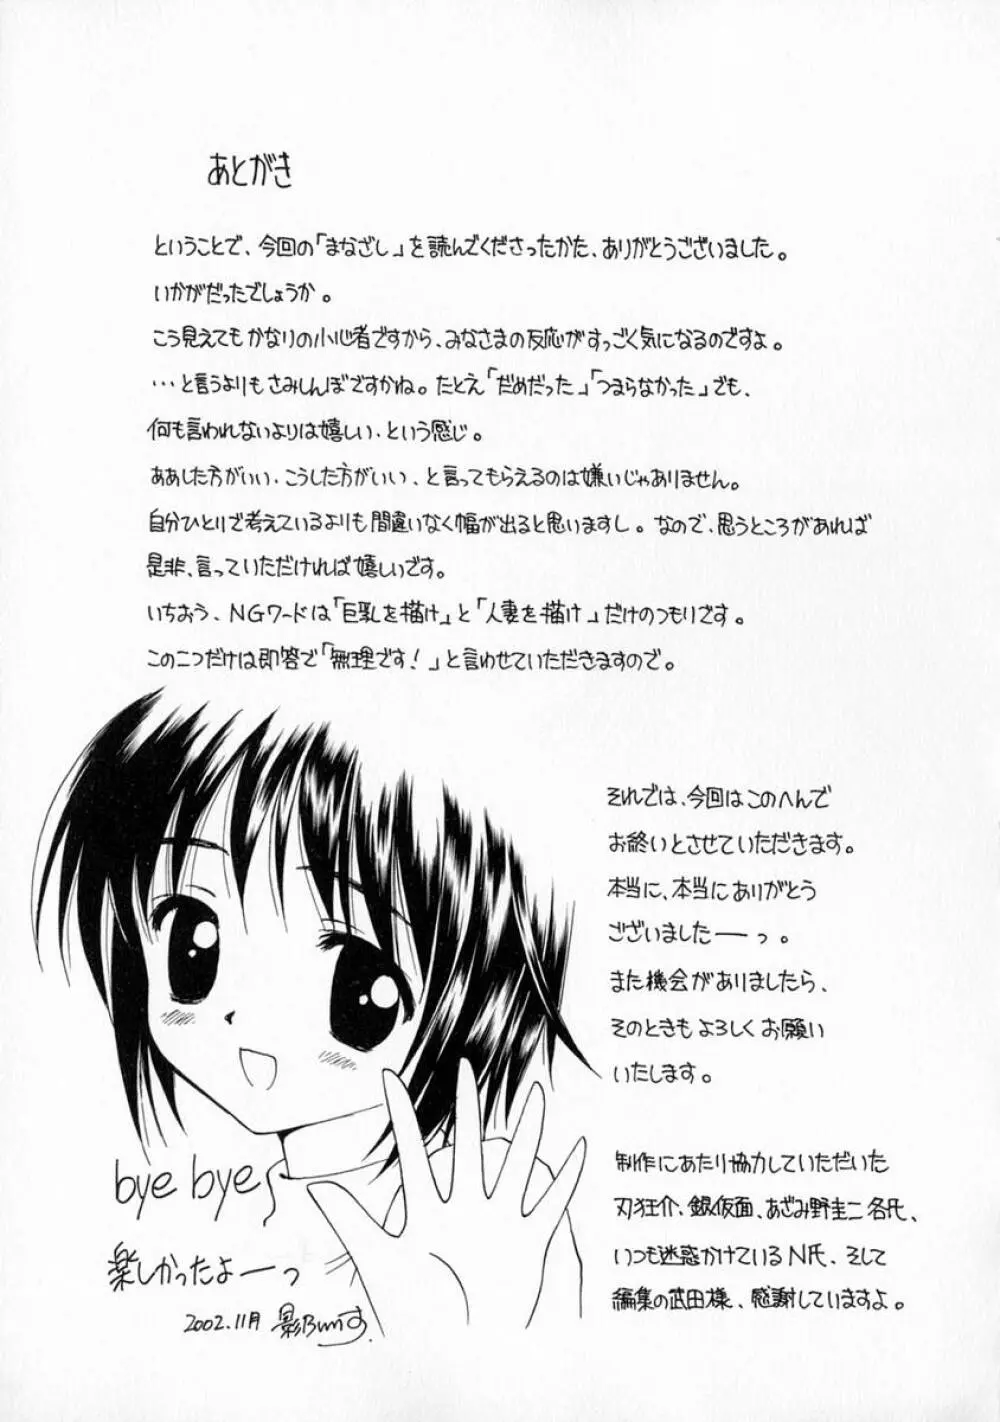 あとがき
ということで、今回の「まなざし」を読んでくださったかた、ありがとうございました。
いかがだったでしょうか。
こう見えてもかなりの小心者ですから、みなさまの反応がすっごく気になるのですよ。
…と言うよりもさみしんぼですかね。たとえ「だめだった」「つまらなかった」でも、
何も言われないよりは嬉しい、という感じ。
ああした方がいい、こうした方がいい、と言ってもらえるのは嫌いじゃありません。
自分ひとりで考えているよりも間違いなく幅が出ると思いますし。なので、思うところがあれば
是非、言っていただければ嬉しいです。
いちおう、NGワードは「巨乳を描け」と「人妻を描け」だけのつもりです。
この二つだけは即答で「無理です!」と言わせていただきますので。
それでは、今回はこのへんで
お終いとさせていただきます。
本当に、本当にありがとう
ございましたーっ。
また機会がありましたら、
そのときもよろしくお願い
いたします。
制作にあたり協力していただいた
刃狂介、銀仮面、あざみ野圭二各氏、
いつも迷惑かけているN氏、そして
編集の武田様、感謝していますよ。
bye bye
楽しかったよーっ
2002.11月 影Bunす.